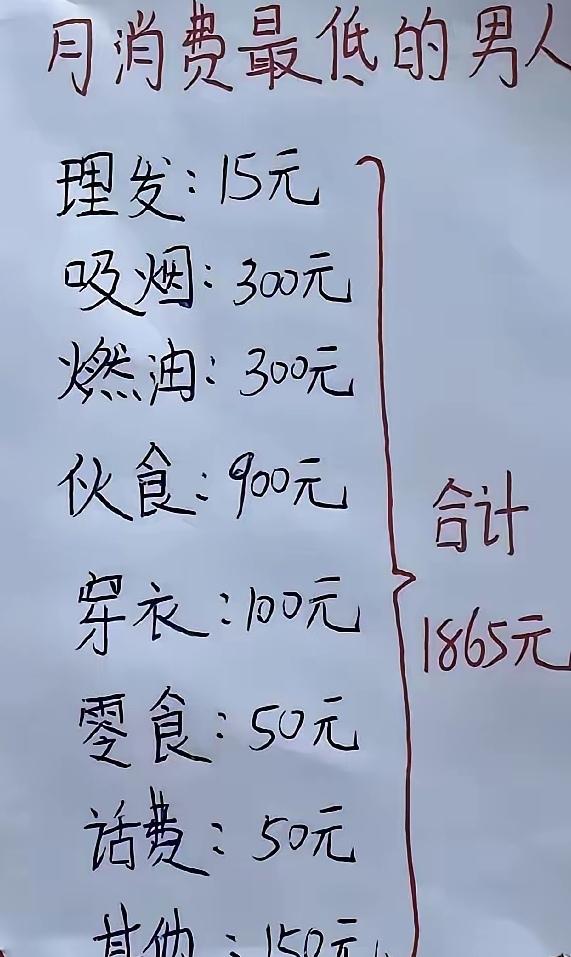 月消费最低的男人
理发：15元
吸烟：300元
燃油：300元
伙食：900元
穿衣：100元
零食：50元
话费：50元
其他：150元
合计
1865元